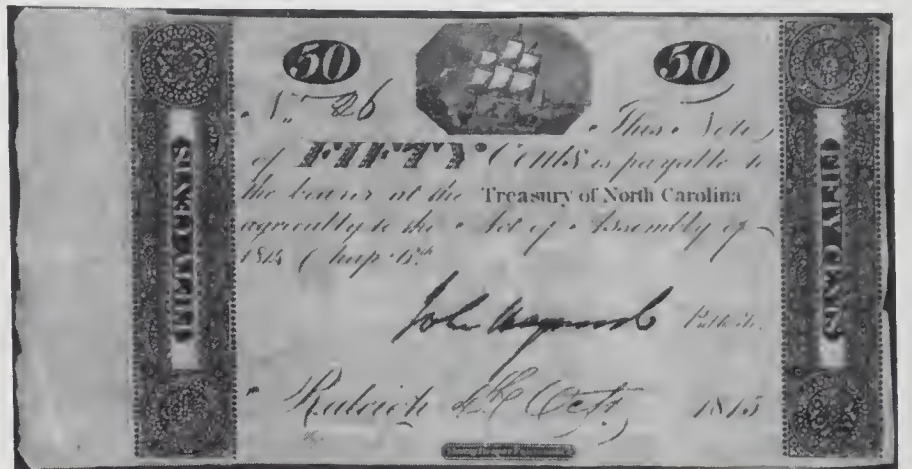 50 50
No. 26
This Note
of FIFTY Cents is payable to
the bearer at the Treasury of North Carolina
agreeably to the Act of Assembly of
1814 Chap.
John Haywood Pub. Tr.
Raleigh Octr. 1815
FIFTY CENTS
FIFTY CENTS